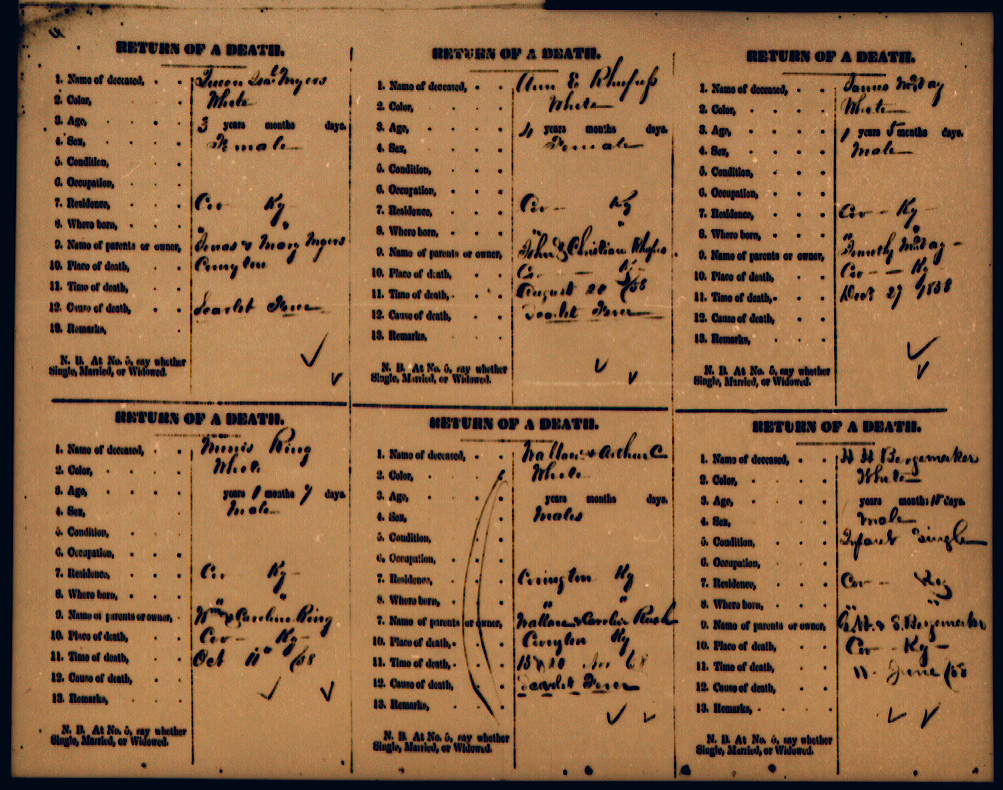 RETURN OF A DEATH.
1. Name of deceased, Myers
2. Color, White
3. Age, 3 years months days.
4. Sex, Female
5. Condition,
6. Occupation,
7. Residence, Cov Ky
8. Where born, " "
9. Name of parents or owner, & Mary Myers
10. Place of death, Covington
11. Time of death,
12. Cause of death, Scarlet Fever
13. Remarks,
N. B. At No. 5, say whether
Single, Married, or Widowed.
RETURN OF A DEATH.
1. Name of deceased, Ann E
2. Color, White
3. Age, 4 years months days.
4. Sex, Female
5. Condition,
6. Occupation,
7. Residence, Cov Ky
8. Where born, " "
9. Name of parents or owner, John & Christian
10. Place of death, Cov Ky
11. Time of death, August 20 /58
12. Cause of death, Scarlet Fever
13. Remarks,
N. B. At No. 5, say whether
Single, Married, or Widowed.
RETURN OF A DEATH.
1. Name of deceased, James
2. Color, White
3. Age, 1 years 5 months days.
4. Sex, Male
5. Condition,
6. Occupation,
7. Residence, Cov Ky
8. Where born, " "
9. Name of parents or owner, Timothy
10. Place of death, Cov Ky
11. Time of death, 27 1858
12. Cause of death,
13. Remarks,
N. B. At No. 5, say whether
Single, Married, or Widowed.
RETURN OF A DEATH.
1. Name of deceased, Ring
2. Color, White
3. Age, years 1 months 7 days.
4. Sex, Male
5. Condition,
6. Occupation,
7. Residence, Cov Ky
8. Where born, " "
9. Name of parents or owner, Wm & Caroline Ring
10. Place of death, Cov Ky
11. Time of death, Oct 11th /58
12. Cause of death,
13. Remarks,
N. B. At No. 5, say whether
Single, Married, or Widowed.
RETURN OF A DEATH.
1. Name of deceased, Wallace & Arthur C
2. Color, White
3. Age, years months days.
4. Sex, Males
5. Condition,
6. Occupation,
7. Residence, Covington Ky
8. Where born, " "
7. Name of parents or owner, Wallace & Caroline Rush
10. Place of death, Covington Ky
11. Time of death, 15 & 20
12. Cause of death, Scarlet Fever
13. Remarks,
N. B. At No. 5, say whether
Single, Married, or Widowed.
RETURN OF A DEATH.
1. Name of deceased, H H Bergemeker
2. Color, White
3. Age, years months 15 days.
4. Sex, Male
5. Condition, Infant Single
6. Occupation,
7. Residence, Cov Ky
8. Where born, " "
9. Name of parents or owner, & E. Bergemeker
10. Place of death, Cov Ky
11. Time of death, 11 June /58
12. Cause of death,
13. Remarks,
N. B. At No. 5, say whether
Single, Married, or Widowed.